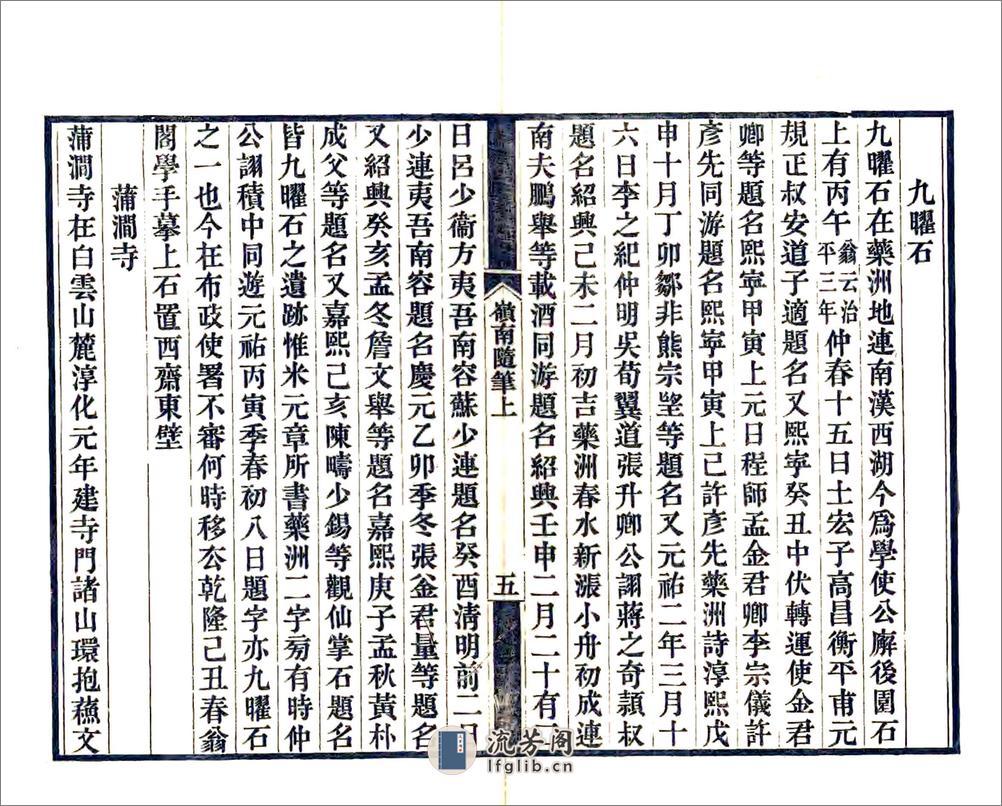 九曜石
九曜石在藥洲地連南漢西湖今爲學使公廨後圃石
上有丙午翁云治平三年仲春十五日士宏子高昌衡平甫元
規正叔安道子適題名又熙寧癸丑中伏轉運使金君
卿等題名熙寧甲寅上元日程師孟金君卿李宗儀許
彥先同游題名熙寧甲寅上巳許彥先藥洲詩淳熙戊
申十月丁卯鄒非熊宗㘴等題名又元祐二年三月十
六日李之紀仲明吳荀翼道張升卿公詡蔣之奇頴叔
題名紹興己未二月初吉藥洲春水新漲小舟初成連
南夫鵬舉等載酒同游題名紹興壬申二月二十有
嶺南隨筆上
五
日呂少衞方夷吾南容蘇少連題名癸酉淸明前二日
少連夷吾南容題名慶元乙卯季冬張釡君量等題名
又紹興癸亥孟冬詹文舉等題名嘉熙庚子孟秋黃朴
成父等題名又嘉熙己亥陳疇少錫等觀仙掌石題名
皆九曜石之遺跡惟米元章所書藥洲二字旁有時仲
公詡積中同遊元祐丙寅季春初八日題字亦九曜石
之一也今在布政使署不審何時移去乾隆己丑春翁
閣學手摹上石置西齋東壁
蒲澗寺
蒲澗寺在白雲山麓淳化元年建寺門諸山環抱蘓文
流芳阁
lfglib.cn